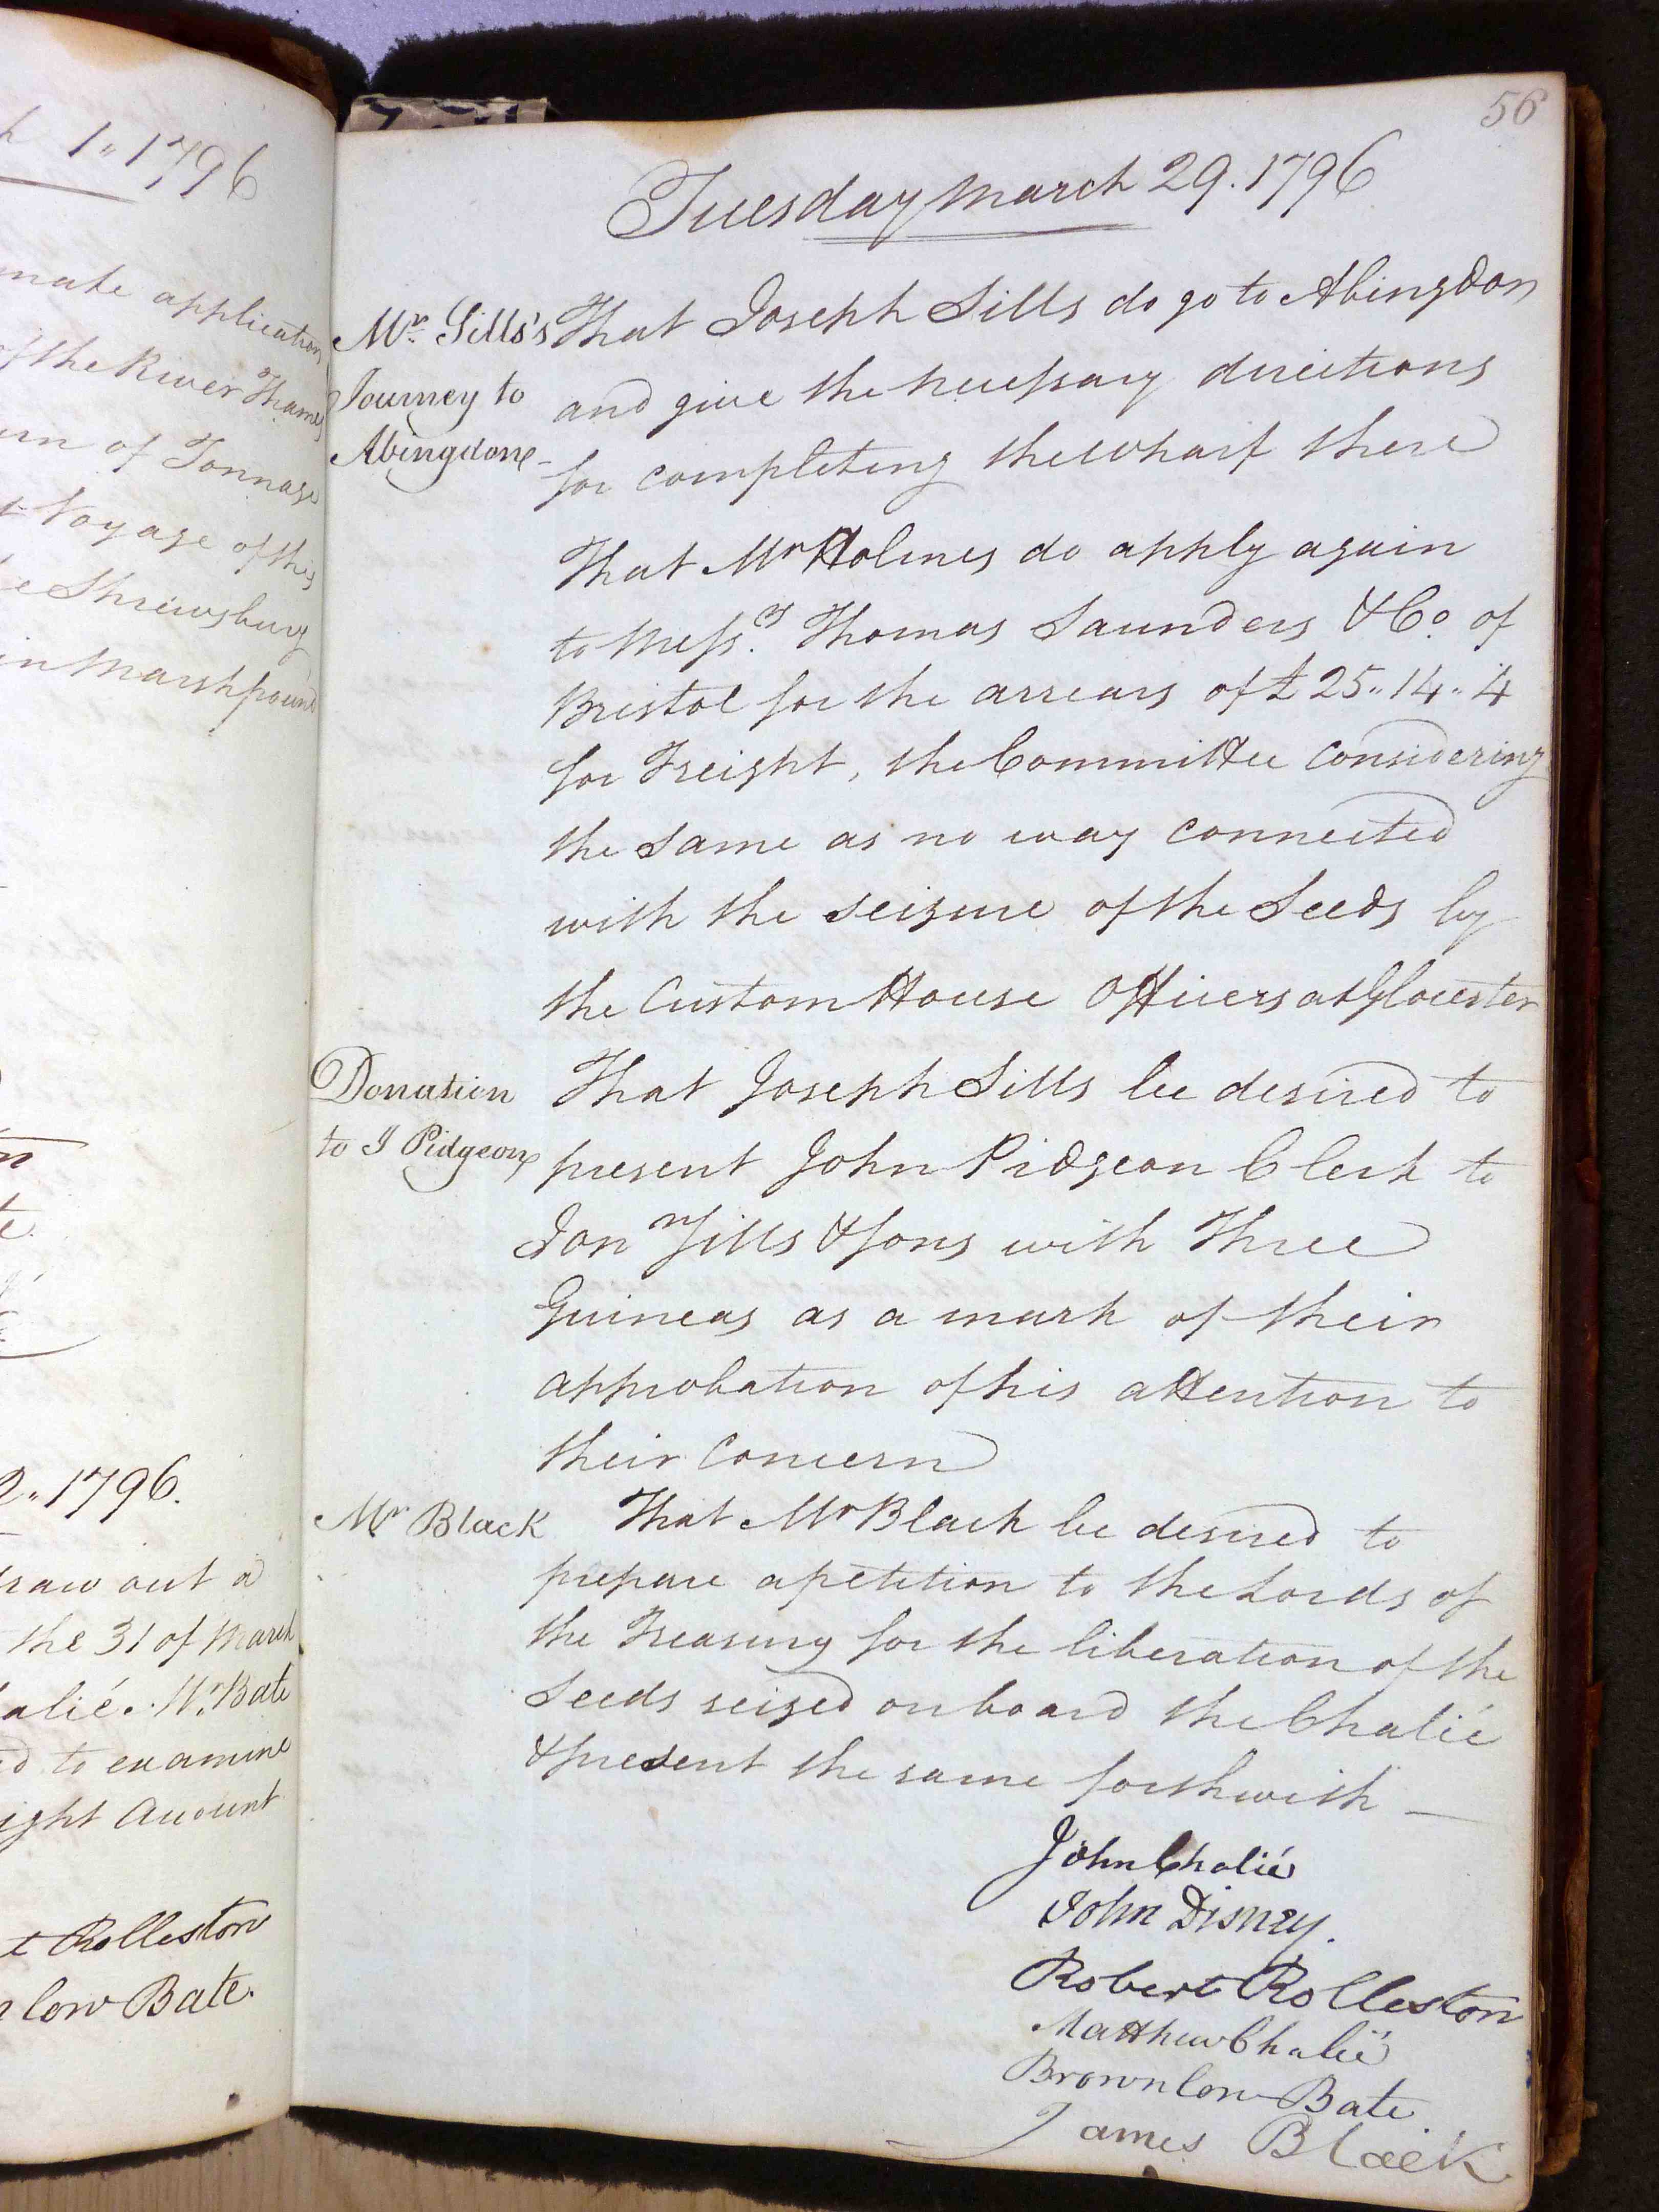 h 1" 1796
make application
of the River Thames
urn of Tonnage
t Voyage of this
e Shrewsbury
in Marshpound
2" 1796.
raw out a
the 31 of March
alié. Mr. Bate
d to examine
ight Account
t Rolleston
nlow Bate.
56
Tuesday March 29. 1796
Mr. Sills's
Journey to
Abingdon
That Joseph Sills do go to Abingdon
and give the necessary directions
for completing the wharf there
That Mr Holmes do apply again
to Mess.rs Thomas Saunders & Co. of
Bristol for the arrears of £ 25" 14" 4
for Freight, the Committee considering
the same as no way connected
with the seizure of the Seeds by
the Custom House Officers at Glocester
Donation
to J Pidgeon
That Joseph Sills be desired to
present John Pidgeon Clerk to
Jon n Sills & Sons with Three
Guineas as a mark of their
approbation of his attention to
their Concern
Mr Black
That Mr Black be desired to
prepare a petition to the Lords of
the Treasury for the liberation of the
Seeds seized on board the Chalié
& present the same forthwith —
John Chalié
John Disney.
Robert Rolleston
Matthew Chalié
Brownlow Bate
James Black